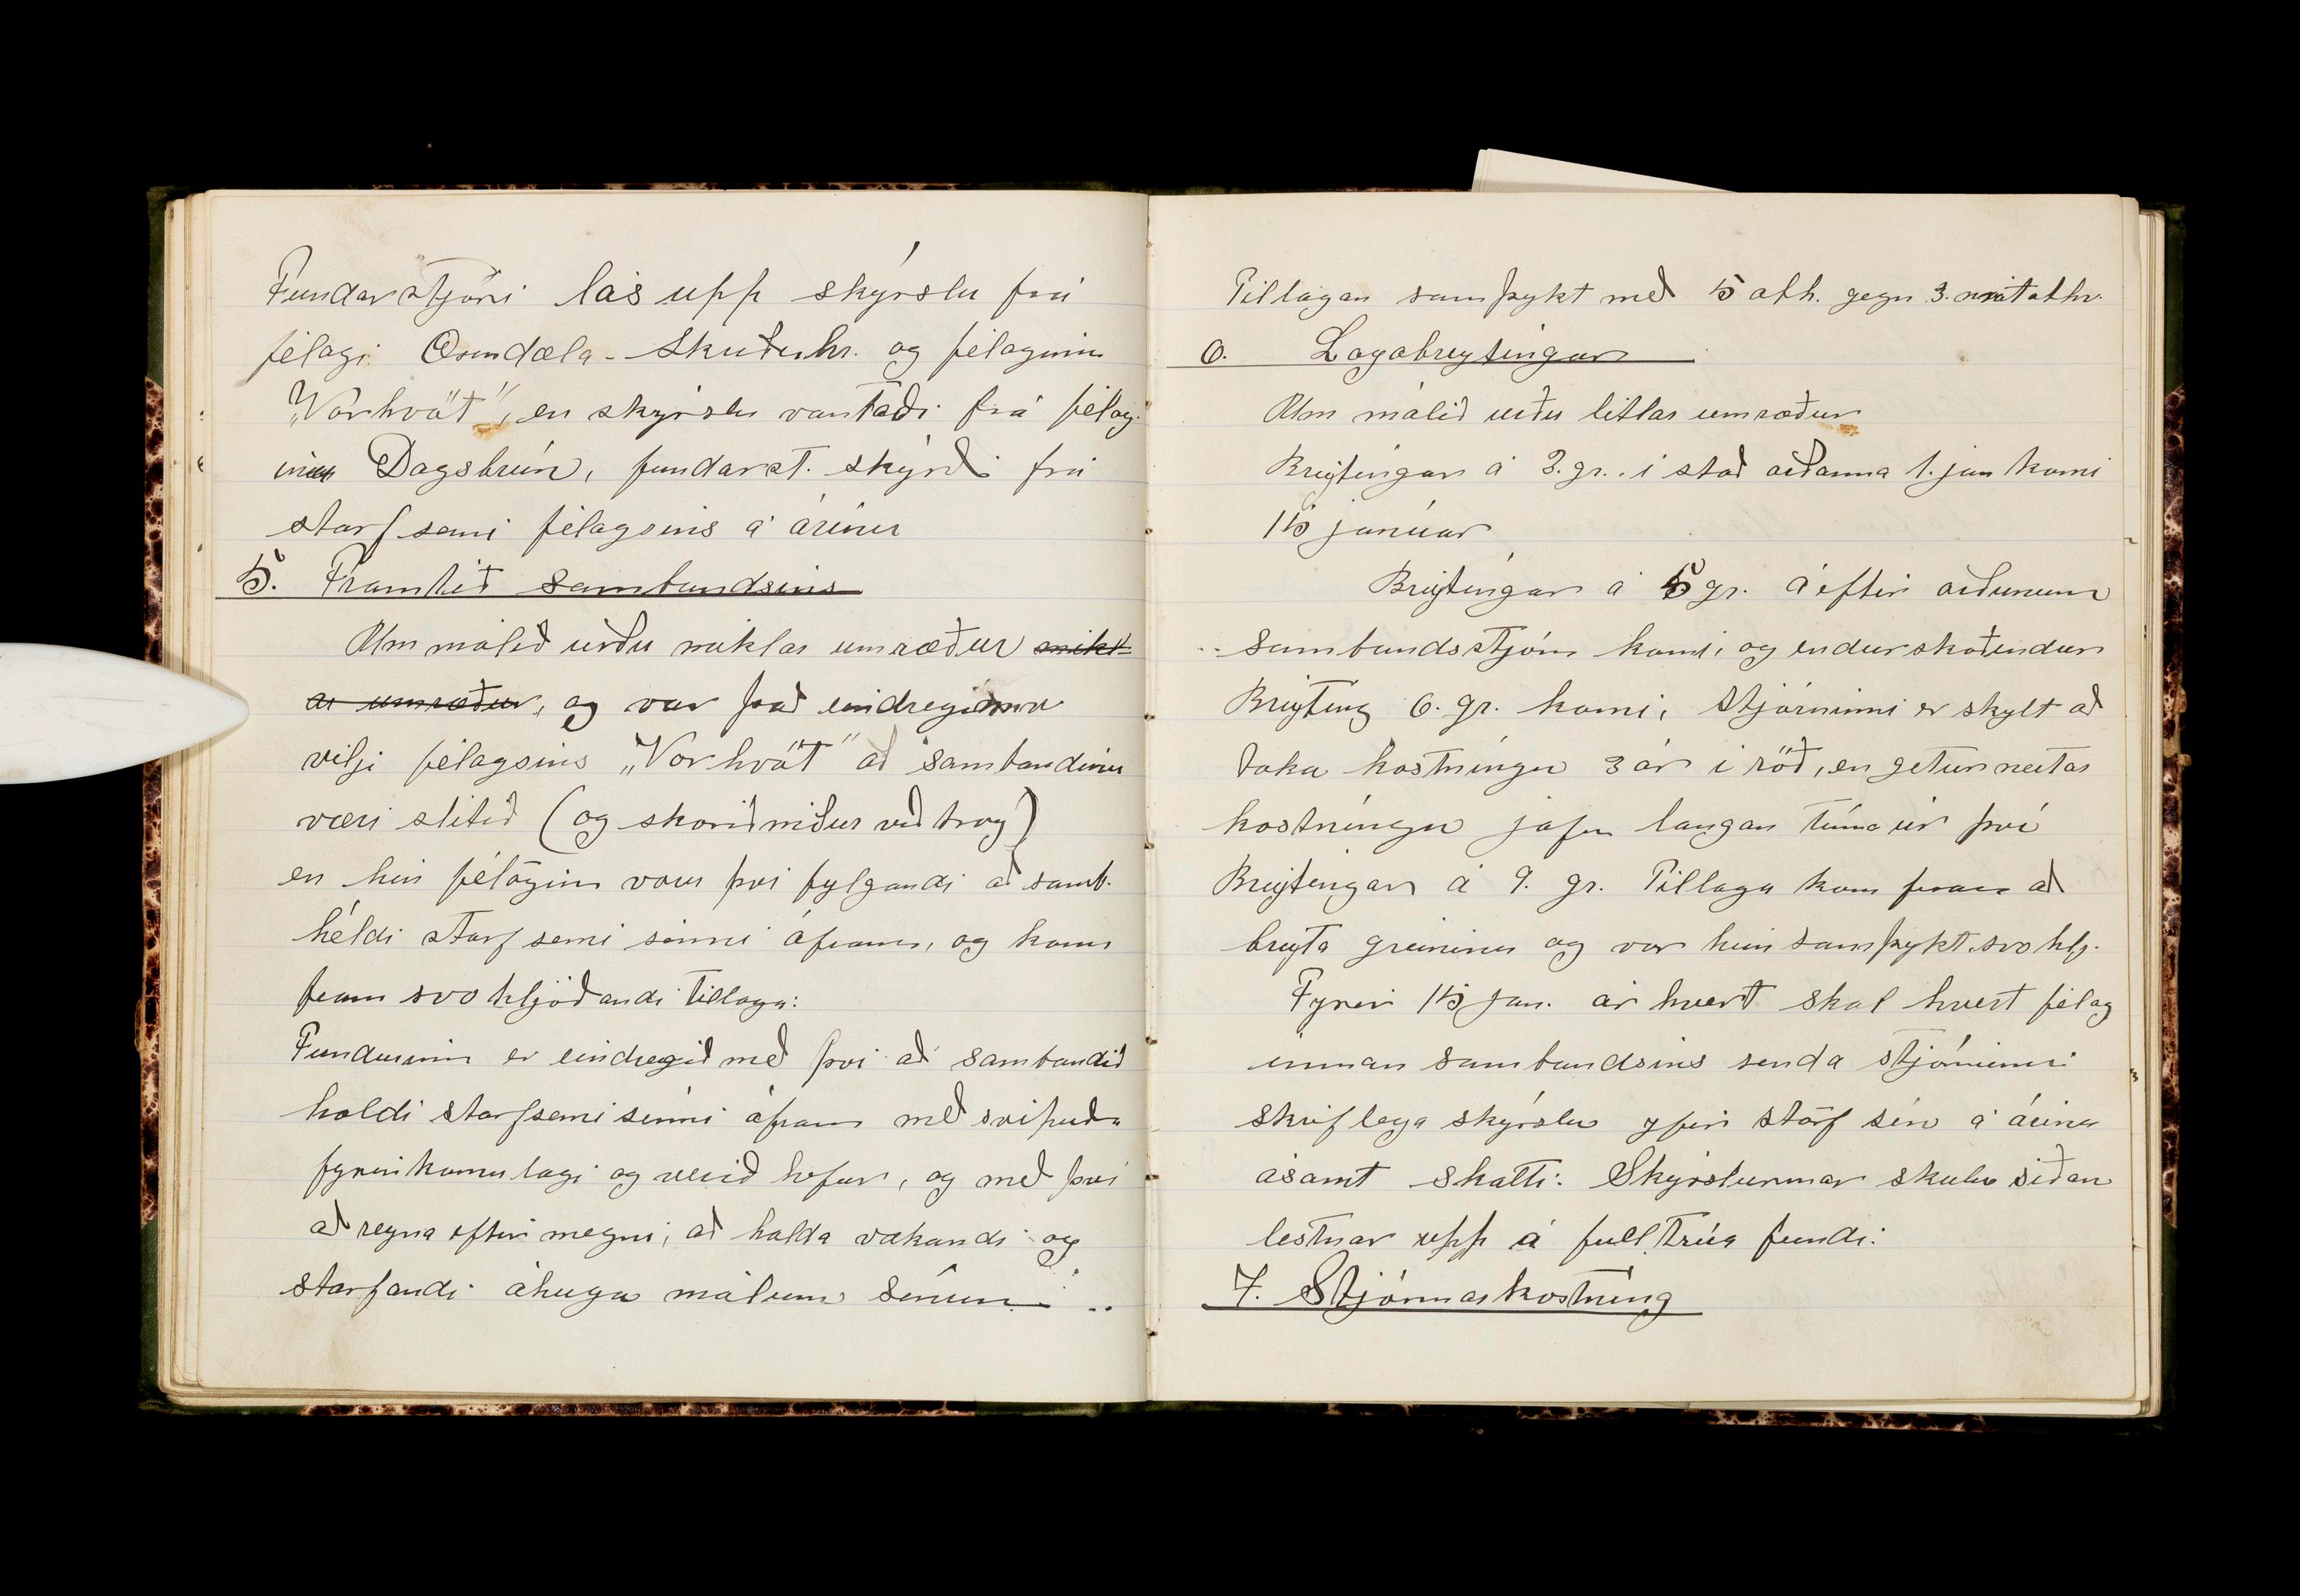 Fundarstjóri las upp skýrslu frá
félagi Ósmdæla-Skuðuhr. og félaginu
„Vorhvöt", en skýrslu vantaði frá félag-
inu Dagsbrún, fundarst. skýrði frá
starfsemi félagsins á árinu
5. Framtíð sambandsins
Um málið urðu miklar umræður mikl-
ar umræður, og var það eindreginn
vilji félagsins „Vorhvöt" að sambandinu
væri slitið (og skorið niður við trog)
en hin félögin voru því fylgandi að samb.
héldi starfsemi sinni áfram, og kom
fram svo hljóðandi tillaga:
Fundurinn er eindregið með því að sambandið
haldi starfsemi sinni áfram með svipuðu
fyrirkomulagi og verið hefur, og með því
að reyna eftir megni, að halda vakandi og
starfandi áhuga málum sínum ..
Tillagan samþykt með 15 atk. gegn 3. mótatkv.
6. Lagabreytingar
Um málið urðu litlar umræður
Breytingar á 3. gr. í stað orðanna 1. jan komi
15 janúar
Breytingar á 5 gr. á eftir orðunum
sambandsstjórn komi, og endurskoðendur
Breyting 6. gr. komi, stjórninni er skylt að
taka kostningu 3 ár í röð, en getur neitað
kostningu jafn langan tíma úr því
Breytingar á 9. gr. Tillaga kom fram að
breyta greininni og var hún samþykt svo hlj.
Fyrir 15 jan. ár hvert skal hvert félag
innan sambandsins senda stjórninni
skriflega skýrslu yfir störf sín á árinu
ásamt skatti. Skýrslurnar skulu síðan
lestnar upp á fulltrúa fundi.
7. Stjórnarkostning